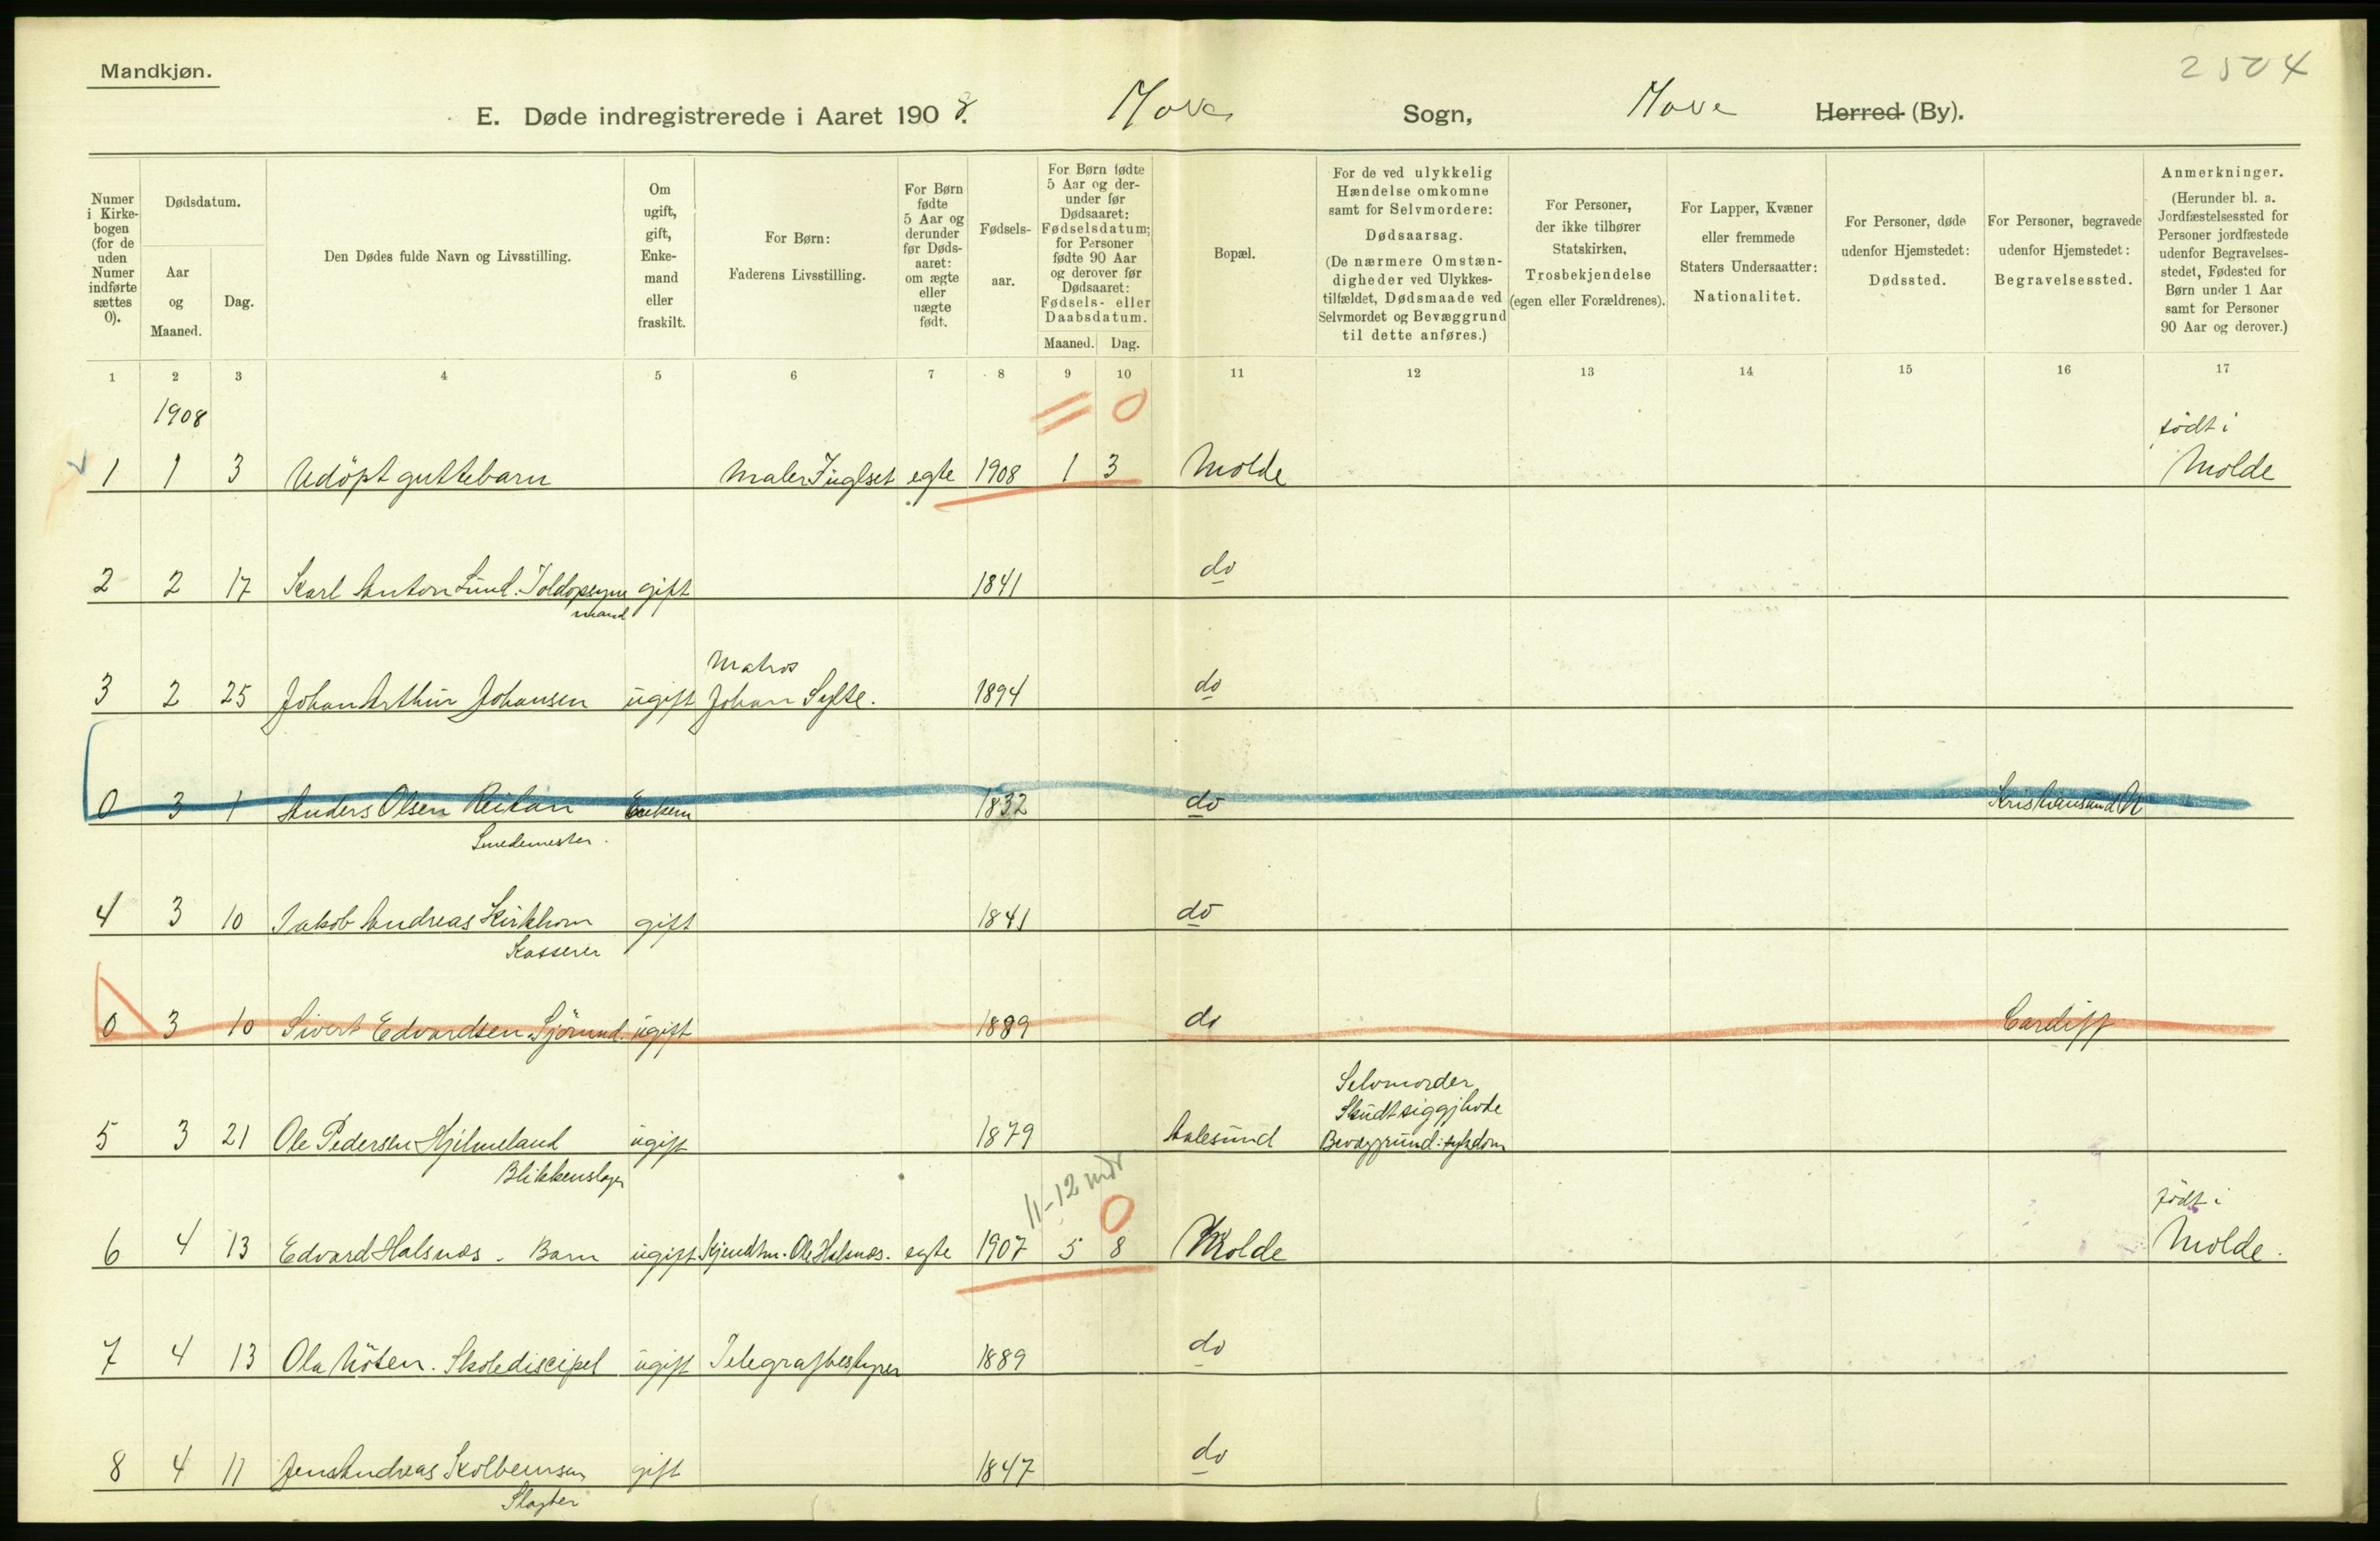 Mandkjøn.
2504
E. Døde indregistrerede i Aaret 1908. Sogn, Herred (By).
Numer i Kirkebogen (for de uden Numer indførte sættes 0).
Dødsdatum.
Aar og Maaned.
Dag.
Den Dødes fulde Navn og Livsstilling.
Om ugift, gift, Enkemand eller fraskilt.
For Børn: Faderens Livsstilling.
For Børn fødte 5 Aar og derunder før Dødsaaret: om ægte eller uægte født.
Fødselsaar.
For Børn fødte 5 Aar og derunder før Dødsaaret: Fødselsdatum; for Personer fødte 90 Aar og derover før Dødsaaret: Fødsels- eller Daabsdatum.
Maaned. Dag.
Bopæl.
For de ved ulykkelig Hændelse omkomne samt for Selvmordere: Dødsaarsag. (De nærmere Omstændigheder ved Ulykkestilfældet, Dødsmaade ved Selvmordet og Bevæggrund til dette anføres.)
For Personer, der ikke tilhører Statskirken, Trosbekjendelse (egen eller Forældrenes).
For Lapper, Kvæner eller fremmede Staters Undersaatter: Nationalitet.
For Personer, døde udenfor Hjemstedet: Dødssted.
For Personer, begravede udenfor Hjemstedet: Begravelsessted.
Anmerkninger. (Herunder bl. a. Jordfæstelsessted for Personer jordfæstede udenfor Begravelsesstedet, Fødested for Børn under 1 Aar samt for Personer 90 Aar og derover.)
1 2 3 4 5 6 7 8 9 10 11 12 13 14 15 16 17
1908
0
født i
1 1 3 Udöpt guttebarn Maler Fuglset egte 1908 1 3 Molde Molde
2 2 17 Karl Anton Lund. Toldopsyns gift 1841 do
mand
Matros
3 2 25 Johan Arthur Johansen ugift Johan Sylte. 1894 do
0 3 1 Anders Olsen Reitan Enkem 1832 do Kristiansund N
Smedemester.
4 3 10 Jakob Andreas Kirkhorn gift 1841 do
Kasserer
0 3 10 Sivert Edvardsen. Sjömand. ugift 1889 do Cardiff
Selvmorder
Skudt sig gj hode
5 3 21 Ole Pedersen Hjelmeland ugift 1879 Aalesund Bevæggrund: sykdom
Blikkenslager
11-12 mdr
0
født i
6 4 13 Edvard Halsnæs. Barn ugift Ole Halsnæs. egte 1907 5 8 Molde Molde.
7 4 13 Ola Nöten. Skolediscipel ugift Telegrafbestyrer 1889 do
8 4 11 Jens Andreas Kolbeinsen gift 1847 do
Slagter